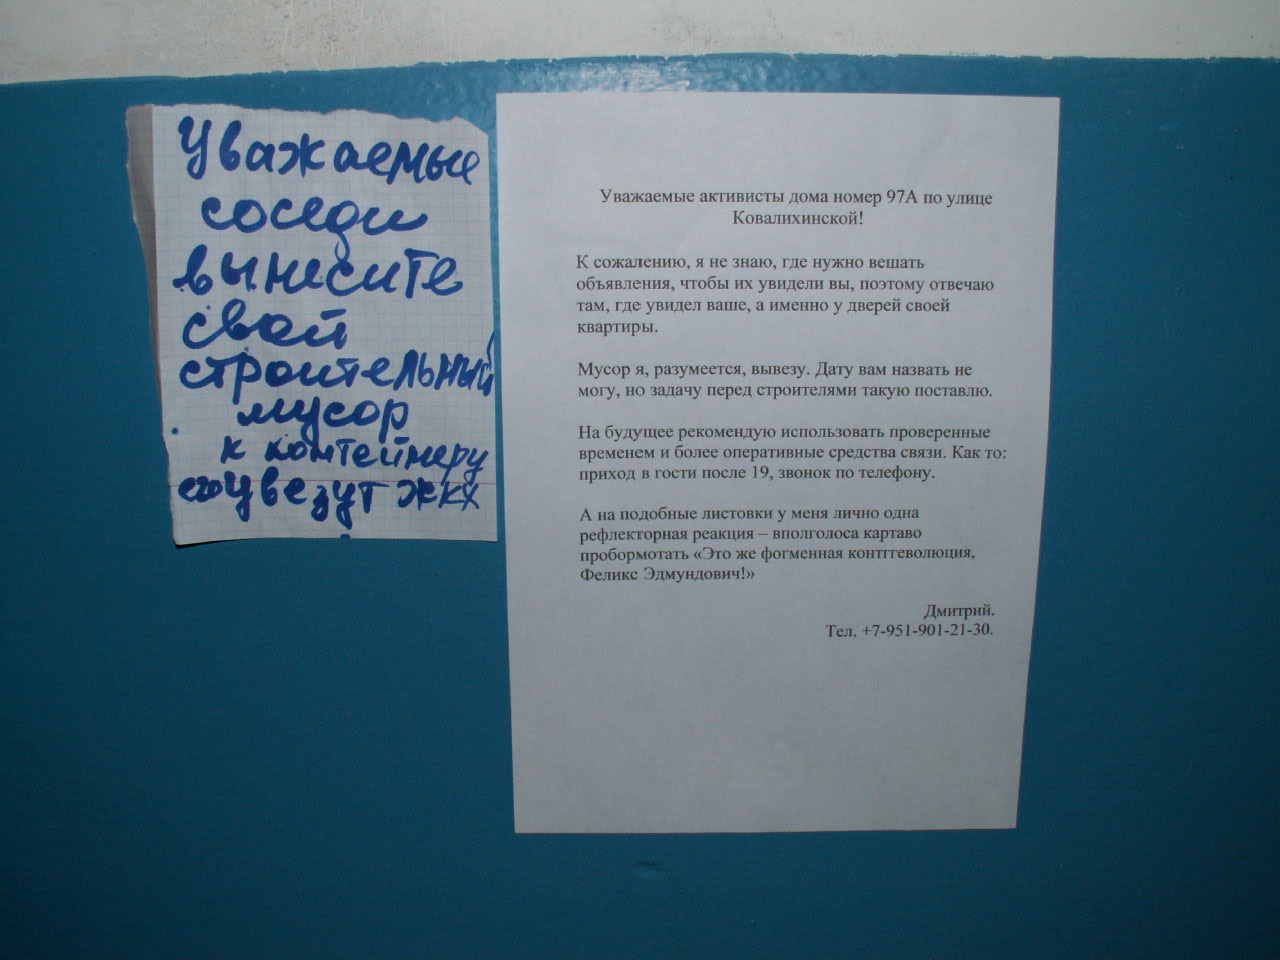 Уважаемые
соседи
вынесите
свой
строительный
мусор
к контейнеру
его увезут жкх
Уважаемые активисты дома номер 97А по улице
Ковалихинской!
К сожалению, я не знаю, где нужно вешать
объявления, чтобы их увидели вы, поэтому отвечаю
там, где увидел ваше, а именно у дверей своей
квартиры.
Мусор я, разумеется, вывезу. Дату вам назвать не
могу, но задачу перед строителями такую поставлю.
На будущее рекомендую использовать проверенные
временем и более оперативные средства связи. Как то:
приход в гости после 19, звонок по телефону.
А на подобные листовки у меня лично одна
рефлекторная реакция – вполголоса картаво
пробормотать «Это же фогменная контггеволюция,
Феликс Эдмундович!»
Дмитрий.
Тел. +7-951-901-21-30.